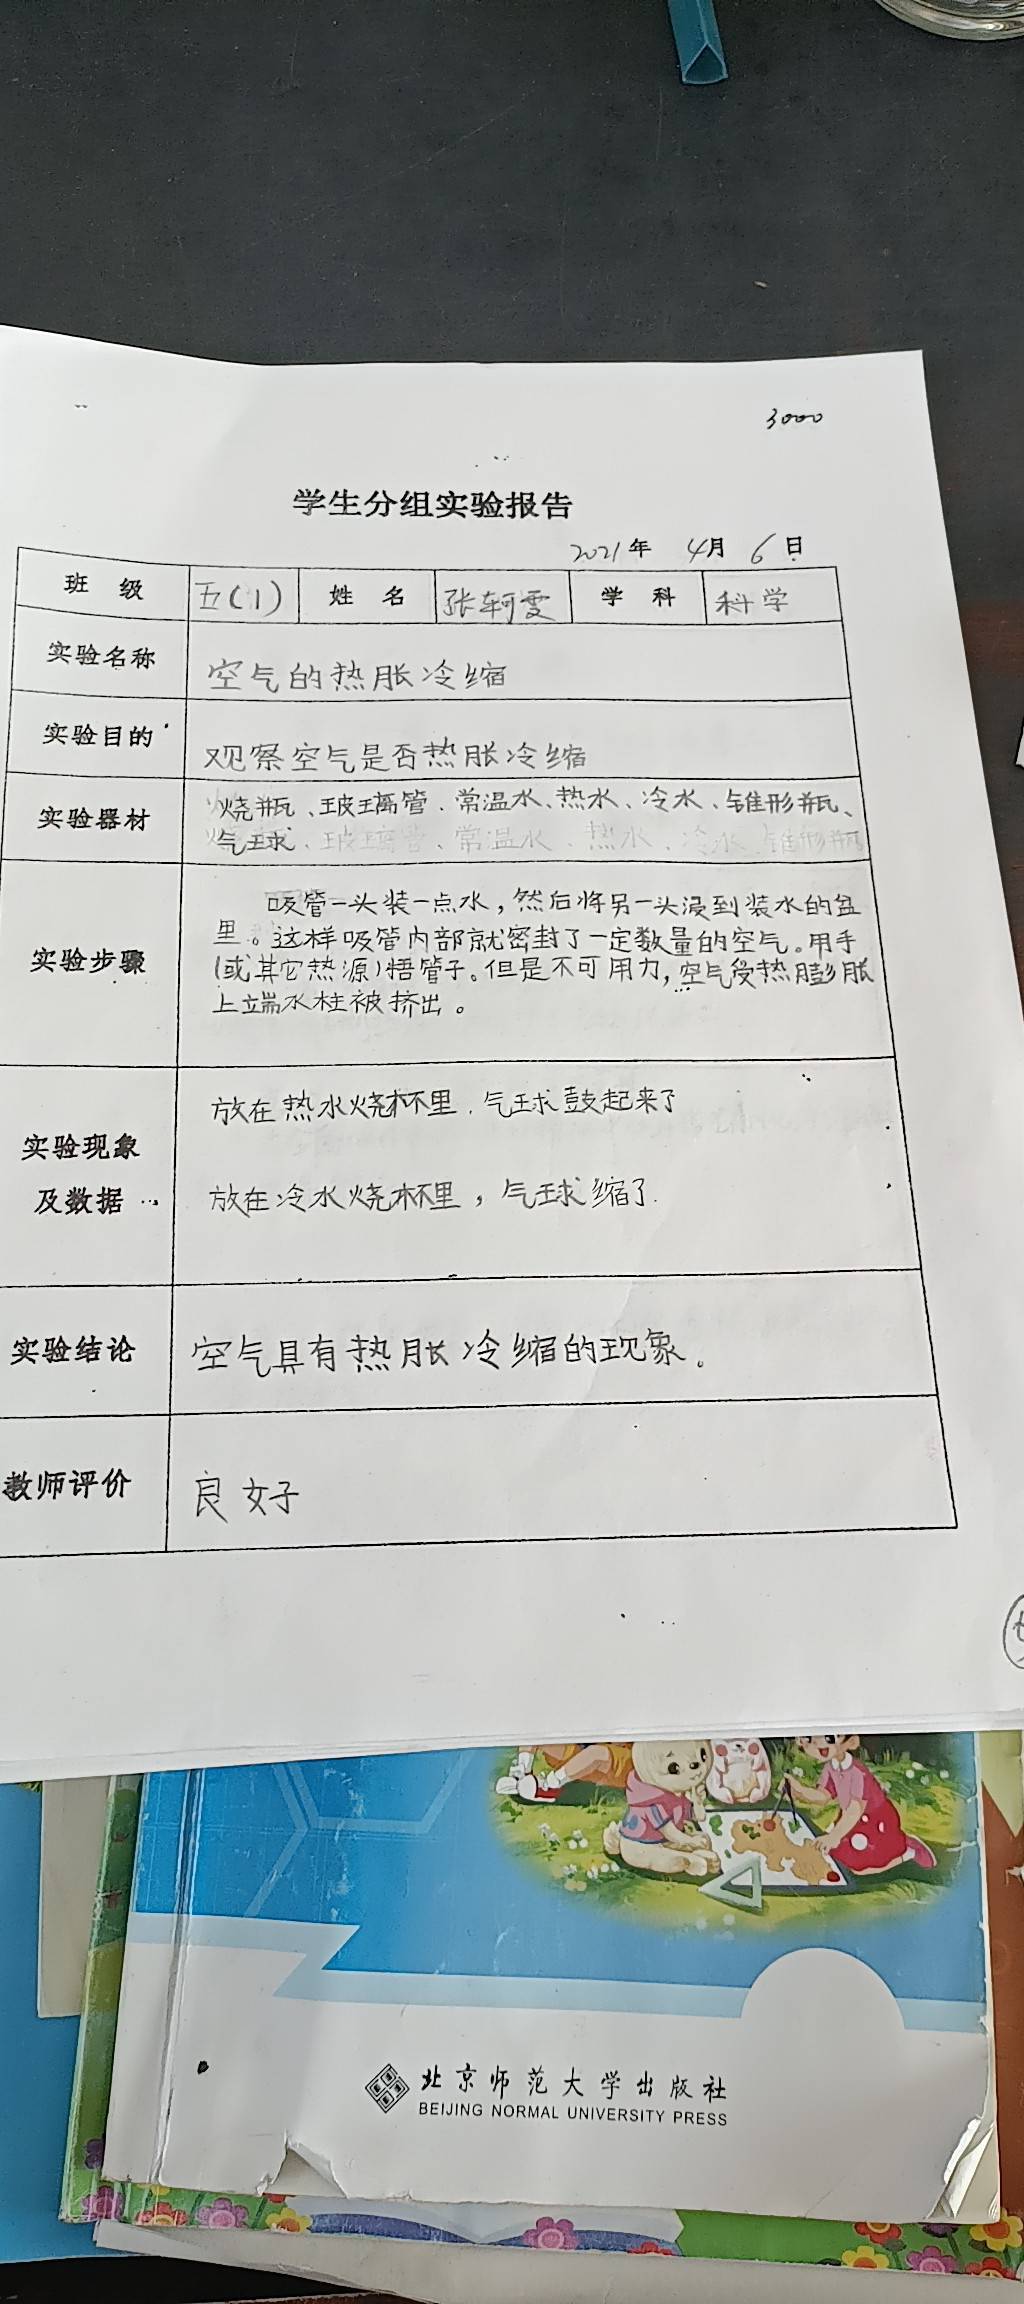 3000
学生分组实验报告
2021年 4月 6日
班 级 五(1) 姓 名 张轲雯 学 科 科学
实验名称 空气的热胀冷缩
实验目的 观察空气是否热胀冷缩
实验器材 烧瓶、玻璃管、常温水、热水、冷水、锥形瓶、
气球
实验步骤
吸管一头装一点水，然后将另一头浸到装水的盆
里。这样吸管内部就密封了一定数量的空气。用手
(或其它热源)捂管子。但是不可用力，空气受热膨胀
上端水柱被挤出。
实验现象
及数据
放在热水烧杯里，气球鼓起来了
放在冷水烧杯里，气球缩了.
实验结论 空气具有热胀冷缩的现象。
教师评价 良好
北京师范大学出版社
BEIJING NORMAL UNIVERSITY PRESS